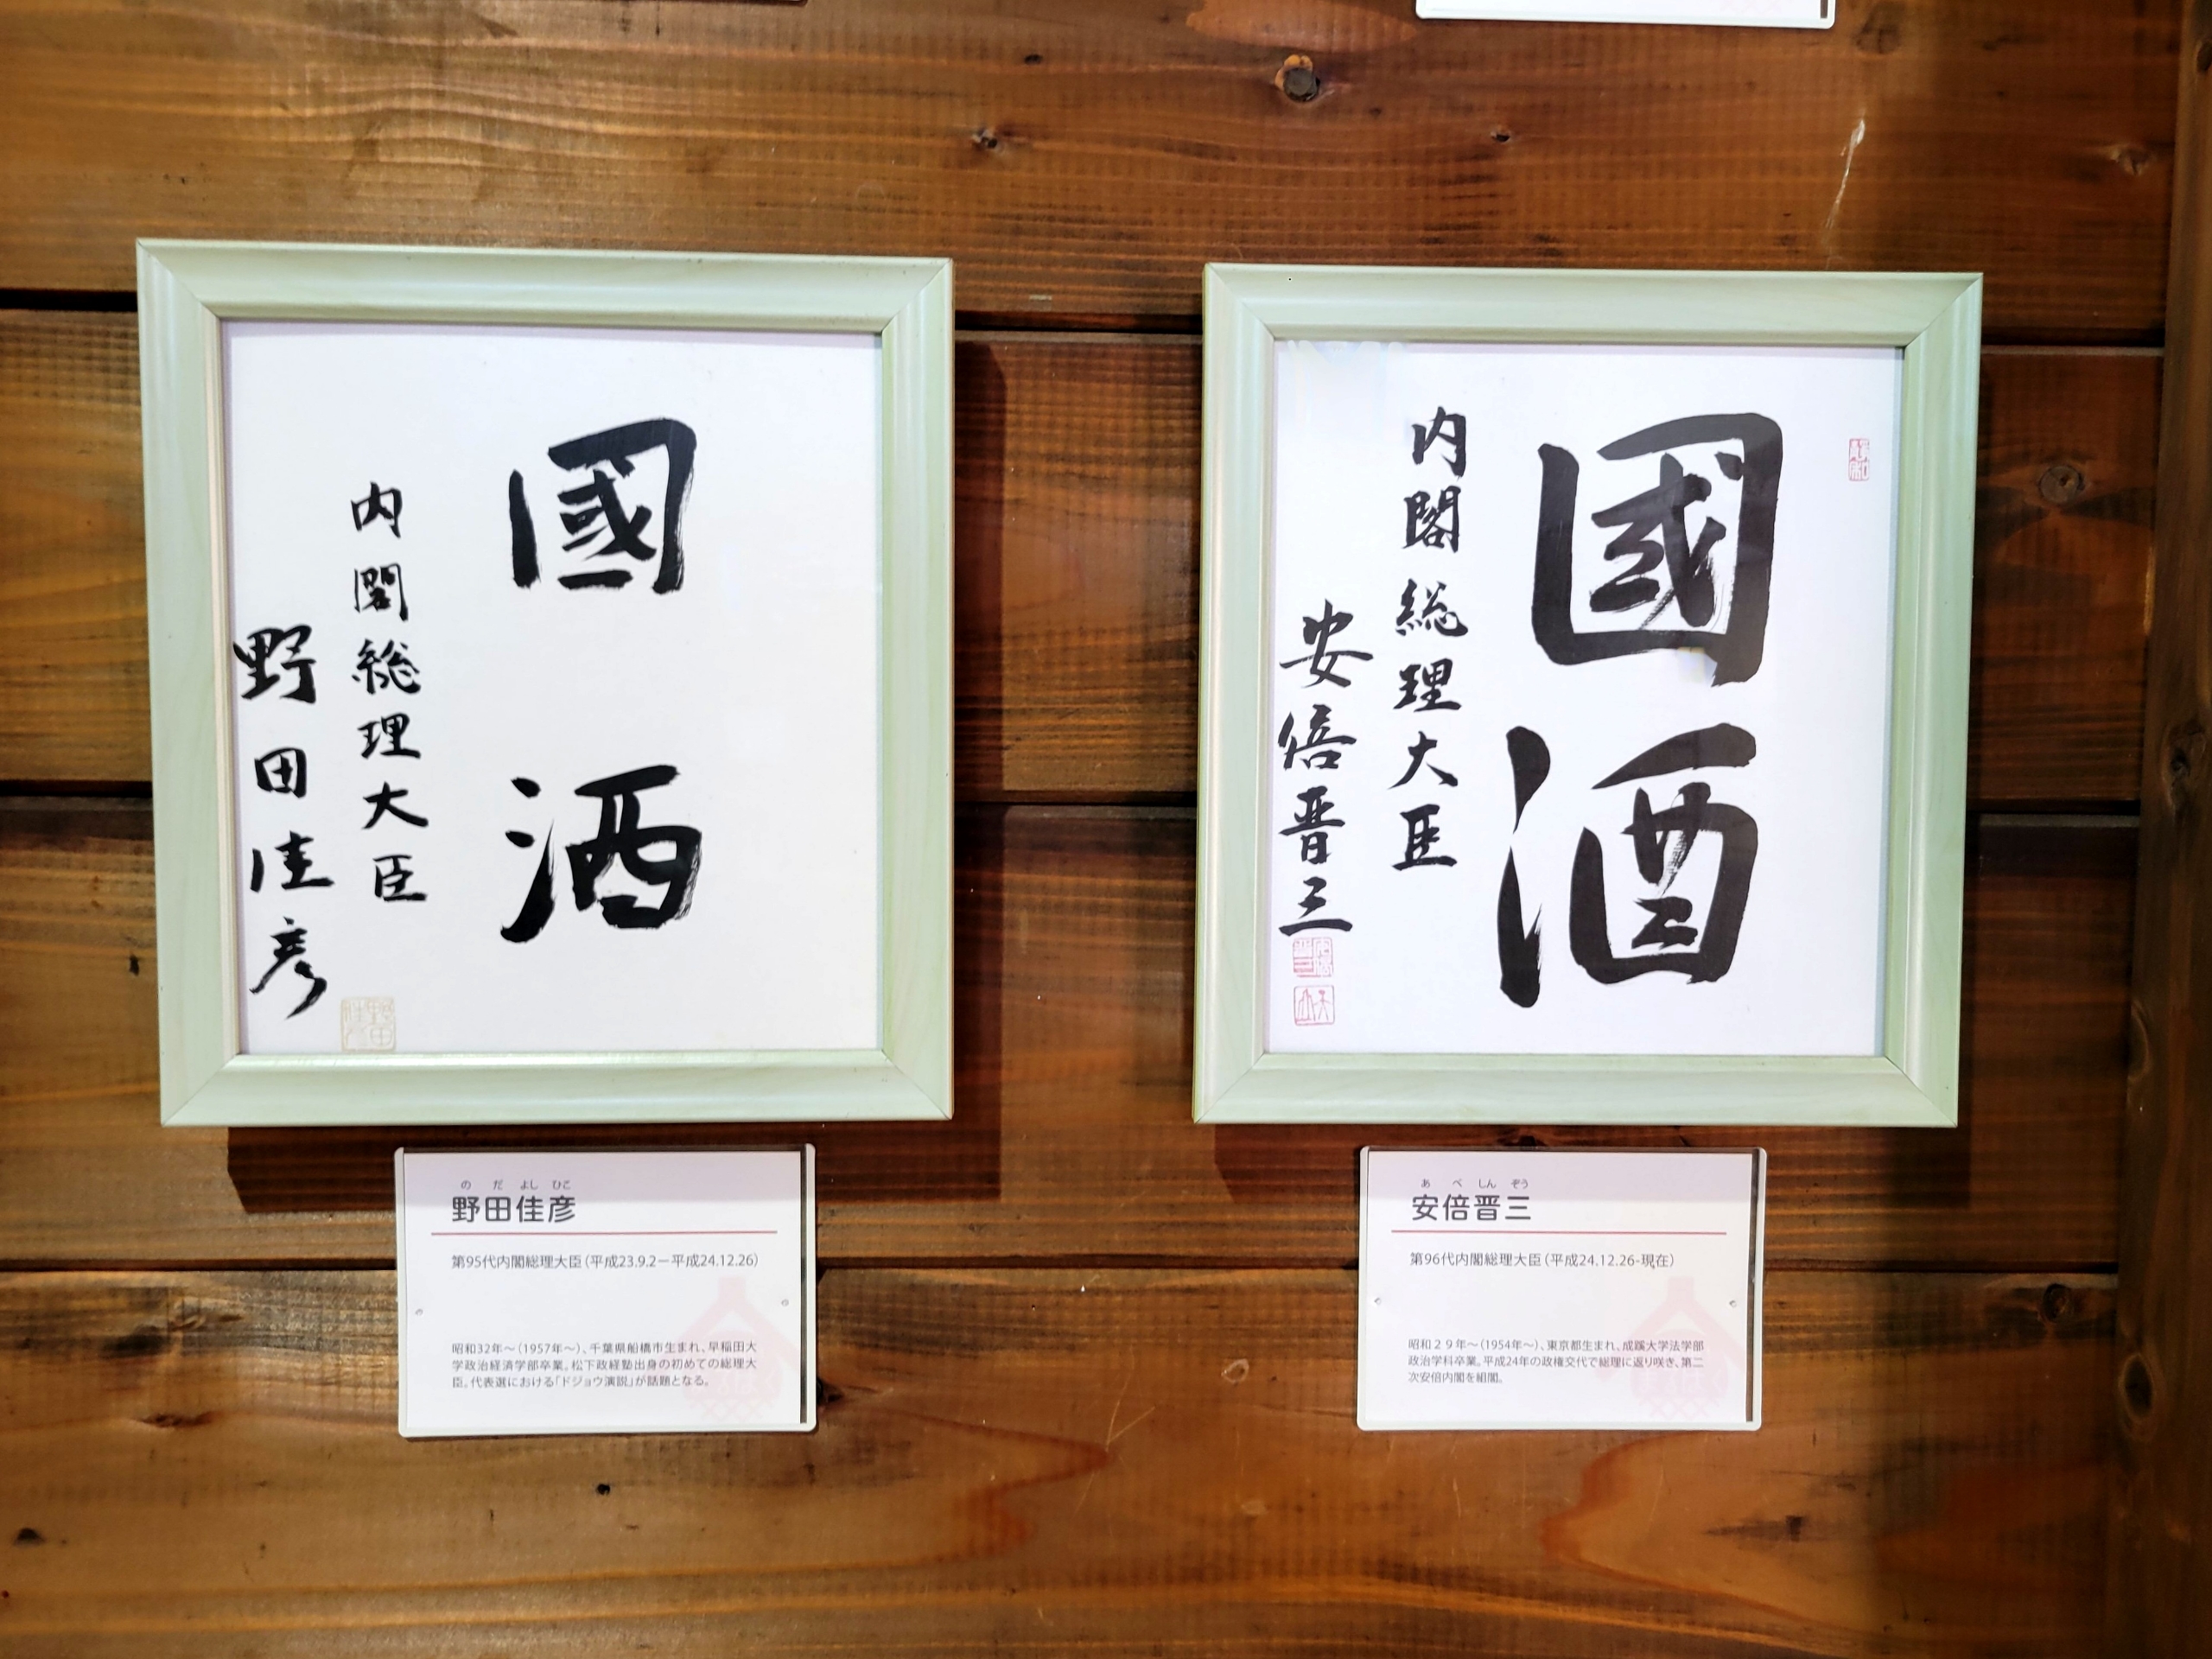 國酒
内閣総理大臣
野田佳彦
國酒
内閣総理大臣
安倍晋三
の だ よし ひこ
野田佳彦
第95代内閣総理大臣(平成23.9.2ー平成24.12.26)
昭和32年〜(1957年〜)、千葉県船橋市生まれ、早稲田大
学政治経済学部卒業。松下政経塾出身の初めての総理大
臣。代表選における「ドジョウ演説」が話題となる。
あ べ しん ぞう
安倍晋三
第96代内閣総理大臣(平成24.12.26-現在)
昭和２９年〜(1954年〜)、東京都生まれ、成蹊大学法学部
政治学科卒業。平成24年の政権交代で総理に返り咲き、第二
次安倍内閣を組閣。